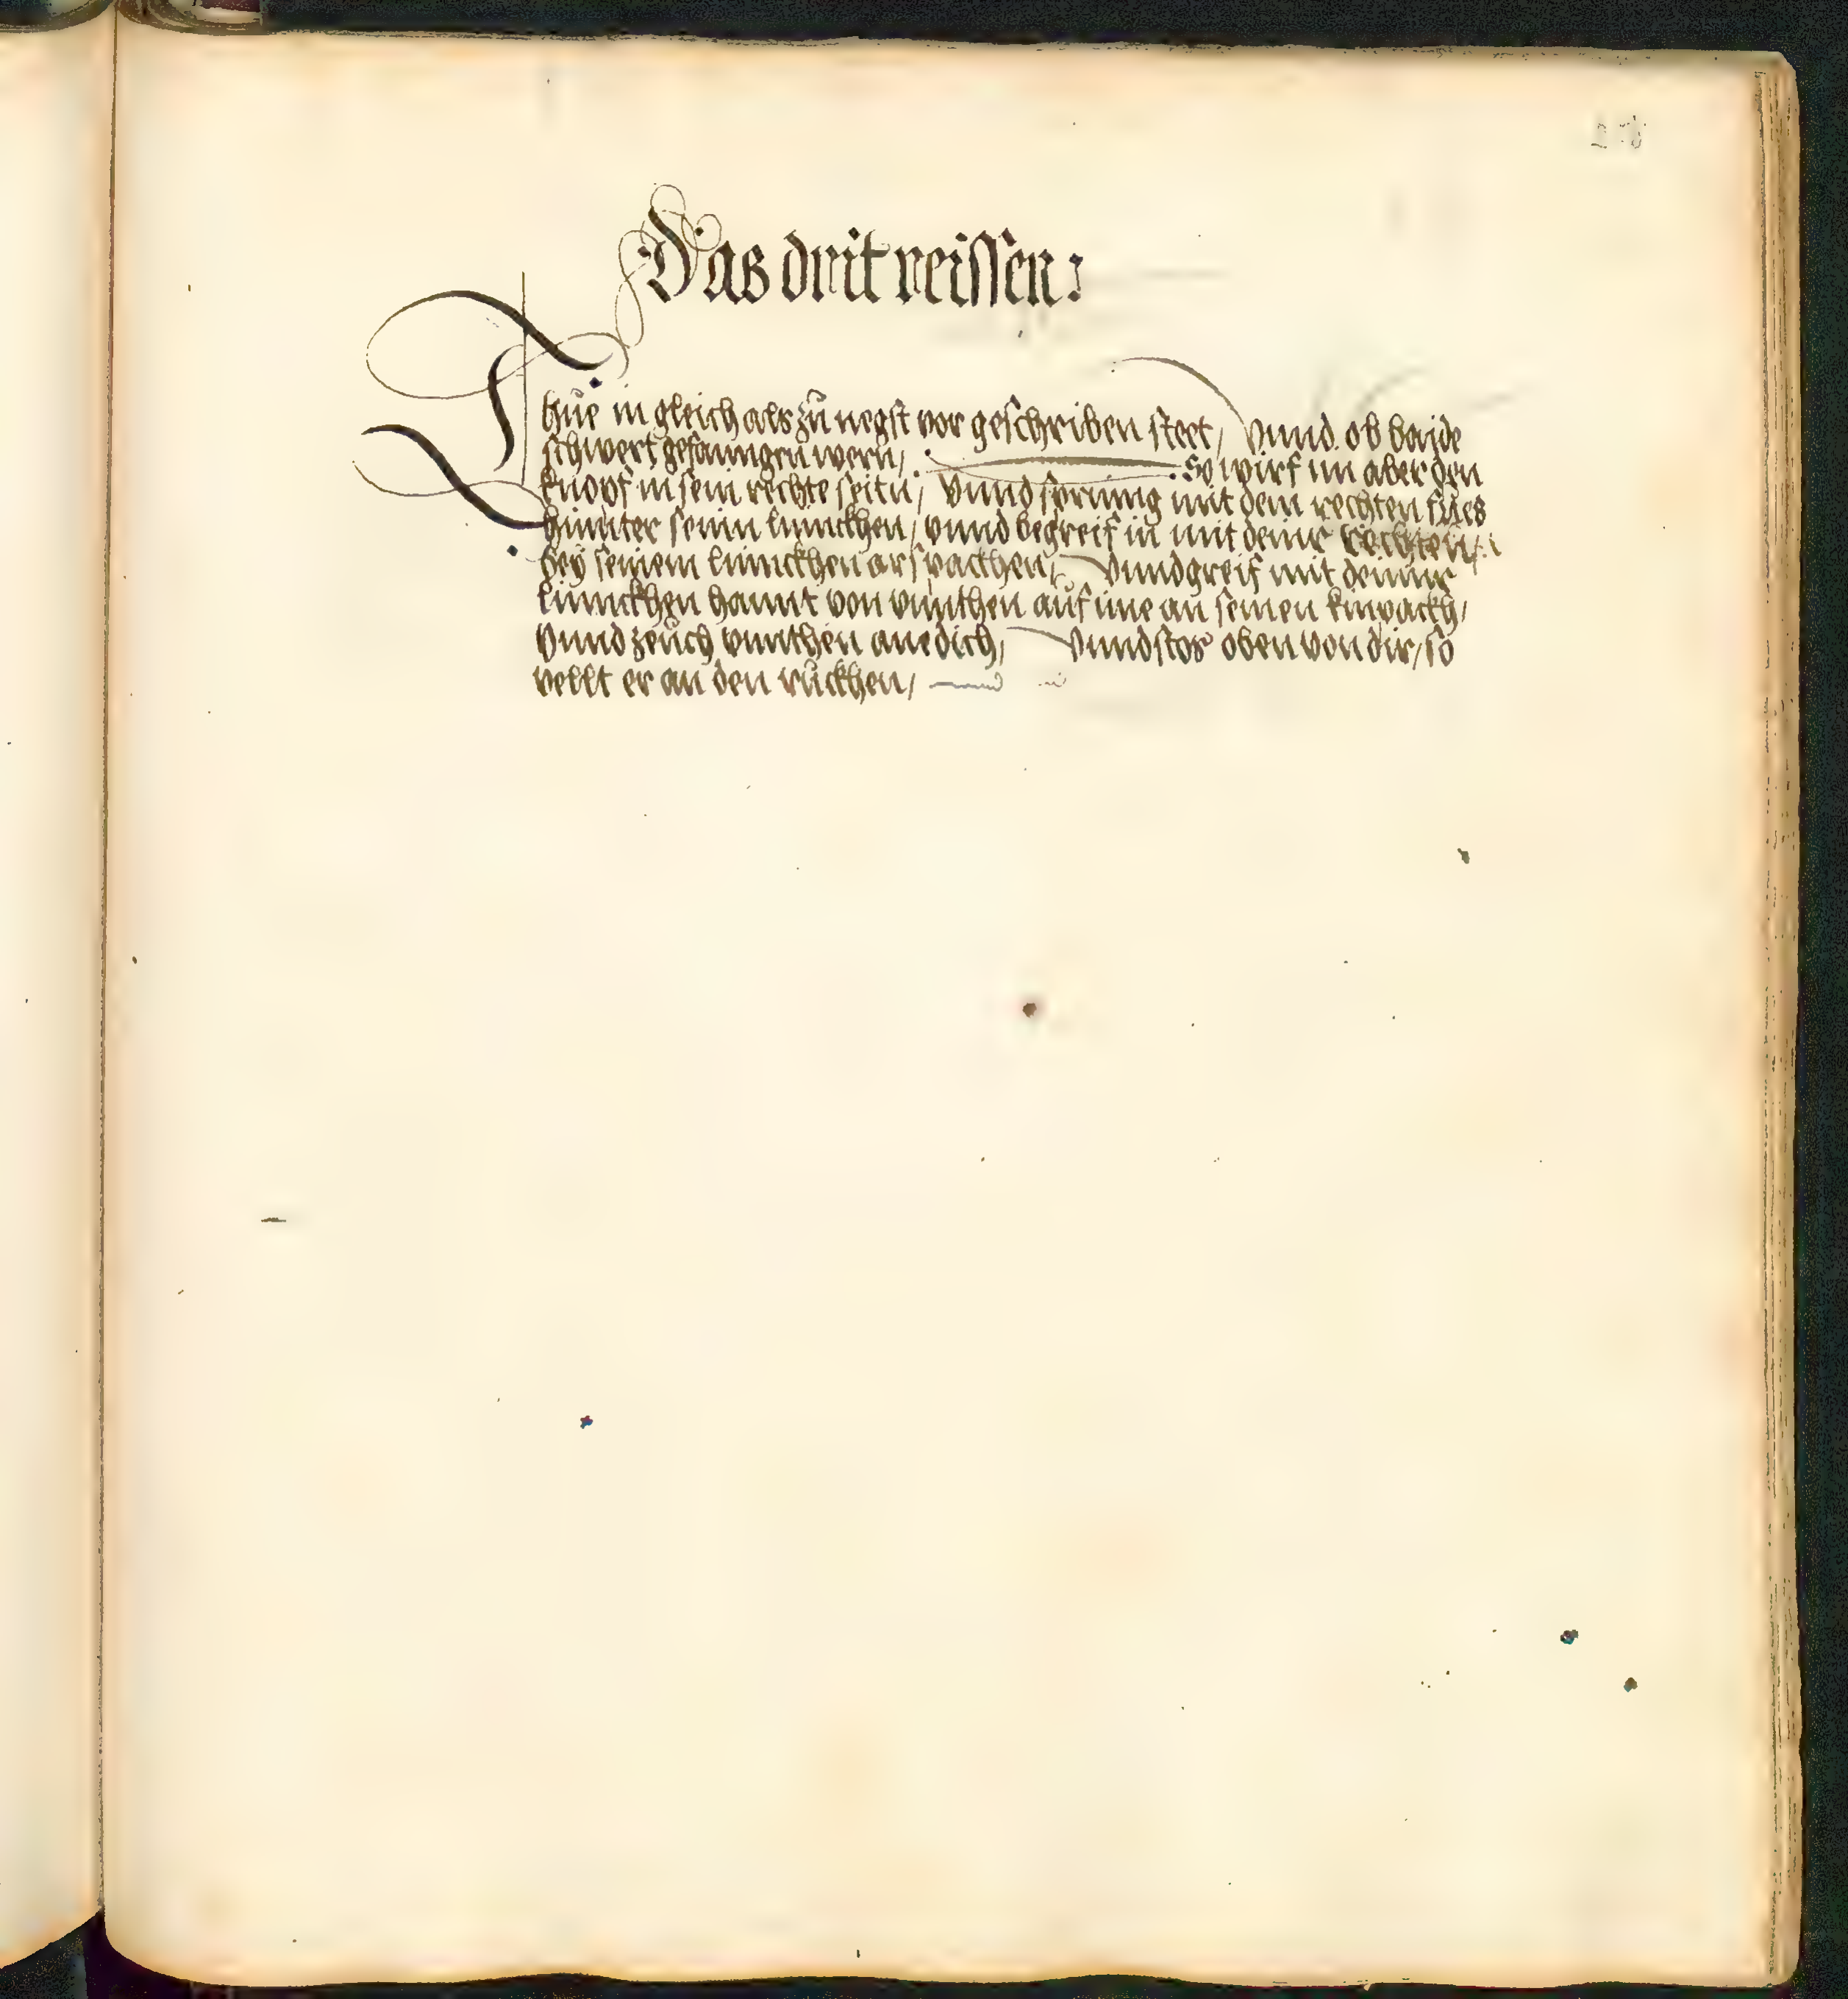 Das drit reissen:
Thue in gleich als zu negst vor geschriben steet, Vnnd ob baide
schwert gefanngen wern, So wirf im aber den
knopf in sein rechte seitn, Vnnd sprinng mit dem rechten fues
hinnter seinn linnckhen, vnnd begreif in mit deinr rechten,
bey seinem linnckhen arspackhen, Vnnd greif mit deinnr
linnckhen hannt von vnnthen auf ime an seinen kinpackh,
Vnnd zeuch vnnthen ane dich, Vnnd stos oben von dir, so
vellt er an den ruckhen,